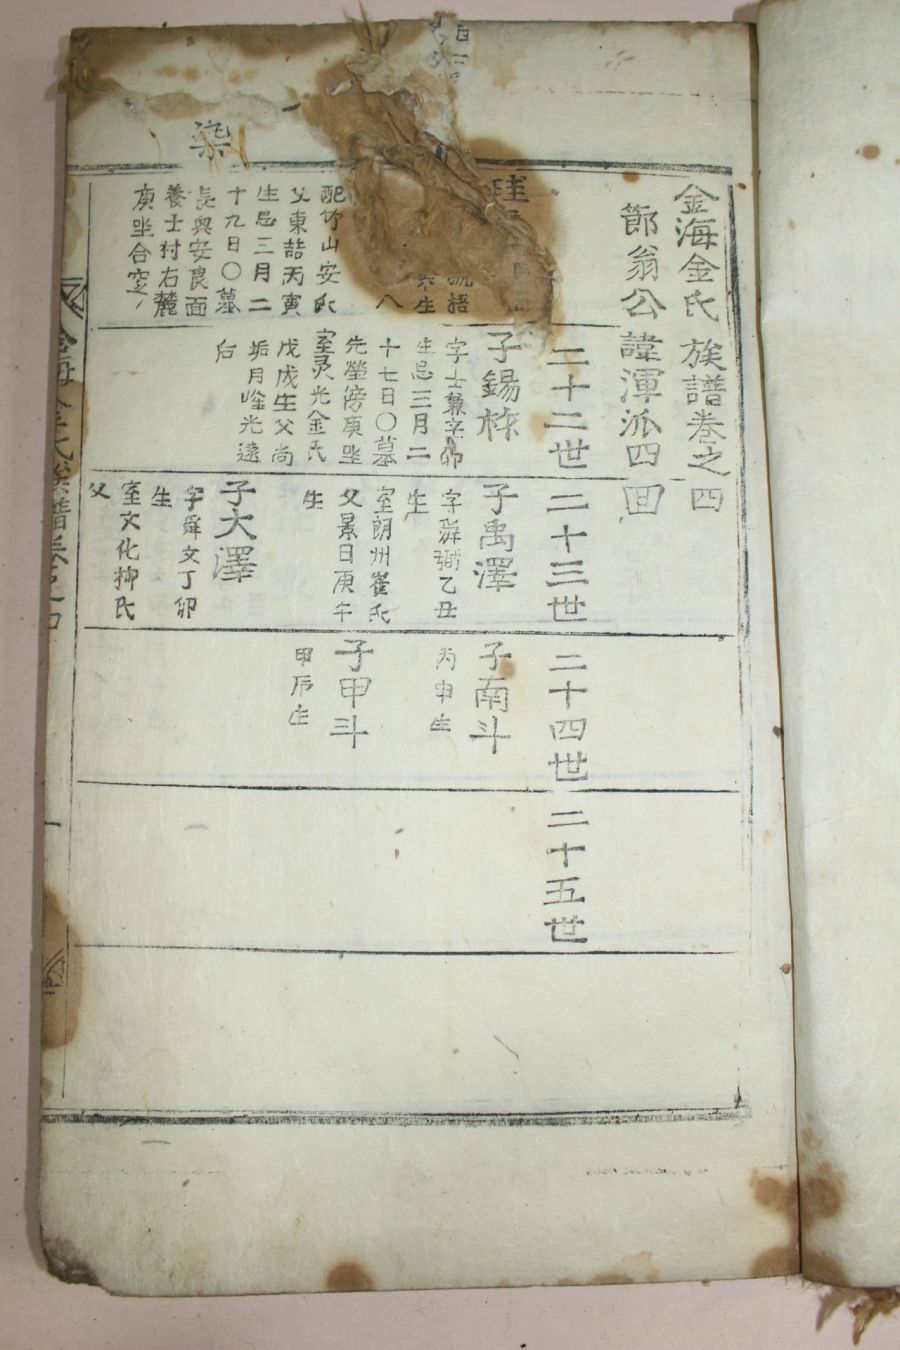 金海金氏族譜卷之四
節翁公諱渾派四
配竹山安氏
父東喆丙寅
生忌三月二
十九日〇墓
長興安良面
養士村右麓
庚坐合窆
二十二世
子錫
字士兼辛卯
生忌三月二
十七日〇墓
先塋傍庚坐
室灵光金氏
戊戌生父尚
后
二十三世
子禹澤
字舜弼乙丑
生
室朗州崔氏
父景日庚午
生
子大澤
字舜文丁卯
生
室文化柳氏
父
二十四世
子南斗
丙申生
子甲斗
甲辰生
二十五世